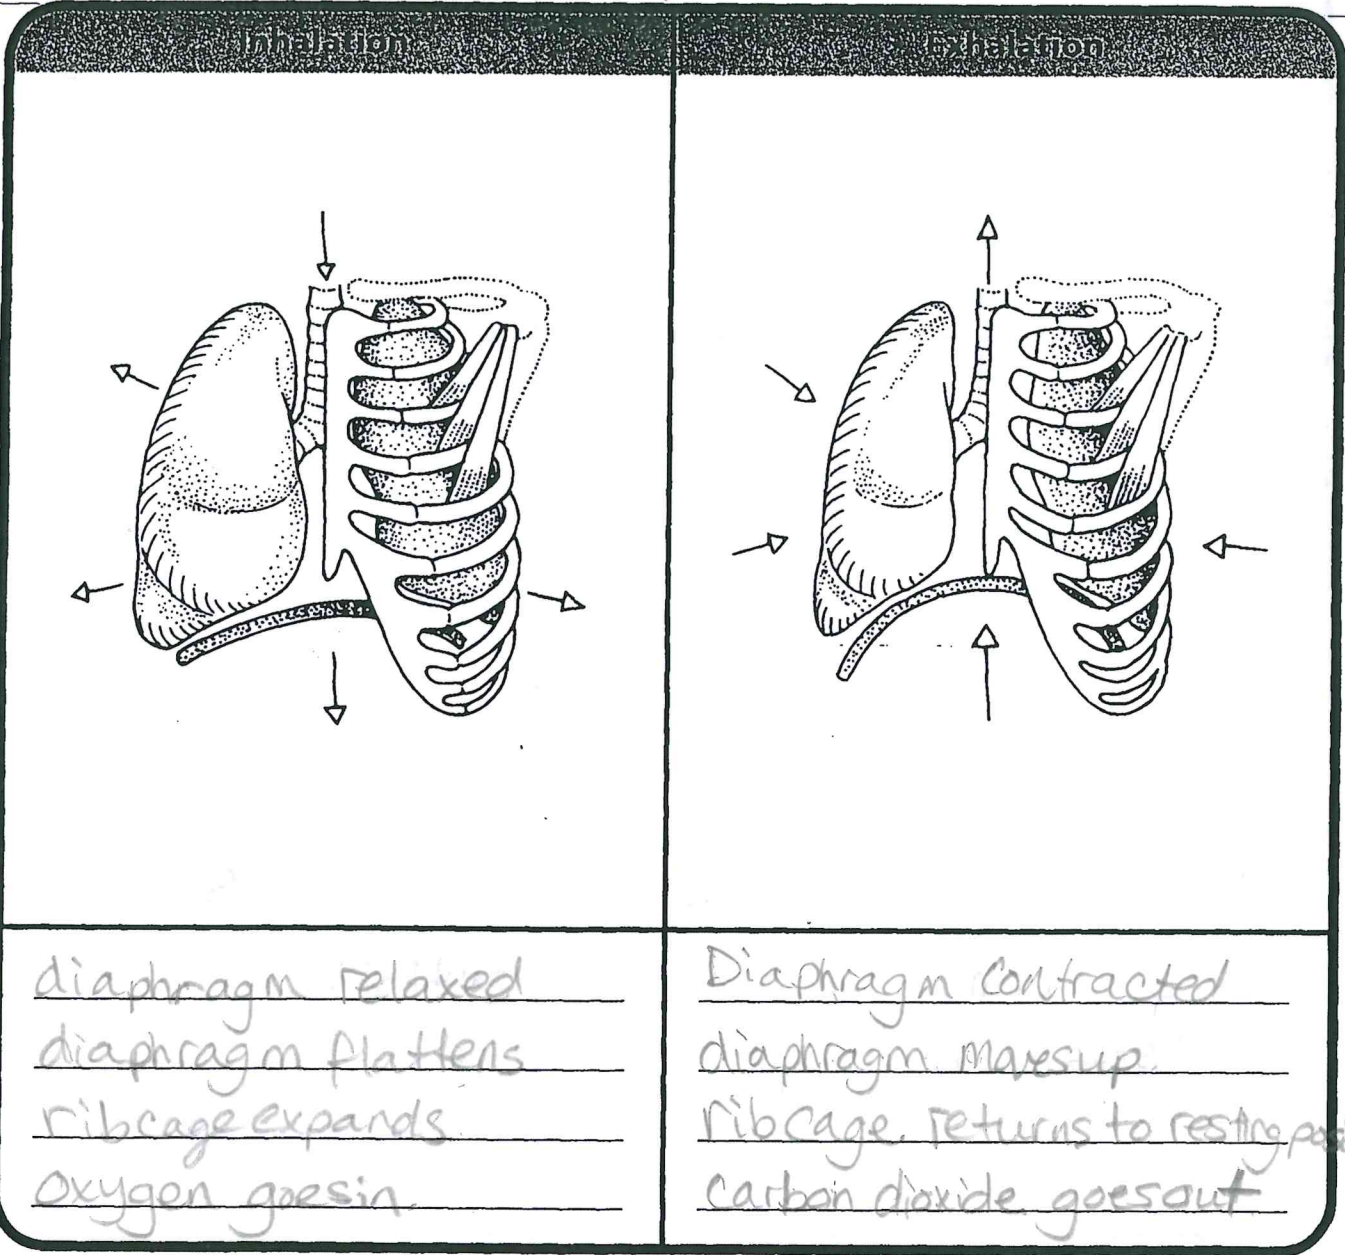 Inhalation
Exhalation
diaphragm relaxed
diaphragm flattens
ribcage expands
oxygen goes in
Diaphragm contracted
diaphragm moves up
ribcage returns to resting
carbon dioxide goes out